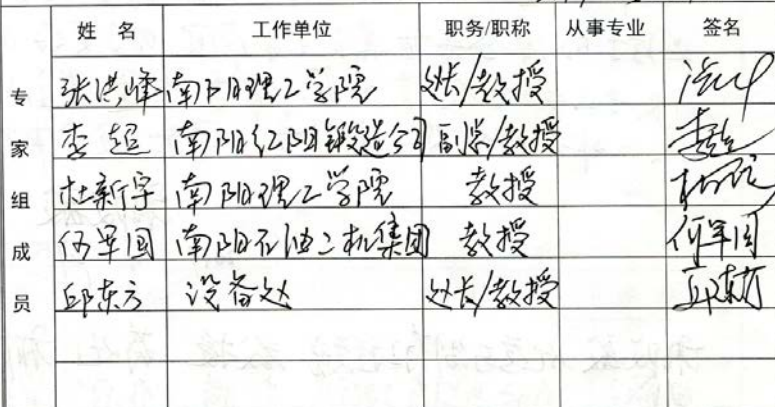 姓 名 工作单位 职务/职称 从事专业 签名
专家组成员
张洪峰 南阳理工学院 处长/教授
李超 南阳红阳锻造公司 副总/教授 李超
杜新宇 南阳理工学院 教授
何军国 南阳石油二机集团 教授 何军国
邱东方 设备处 处长/教授 邱东方